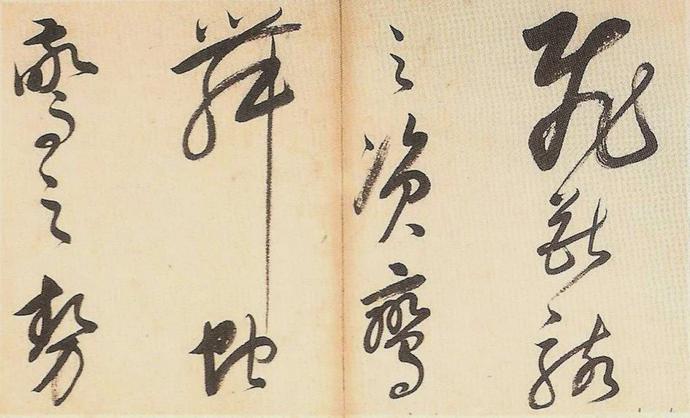 飛獸駭
之資鸞
舞蛇
驚之勢